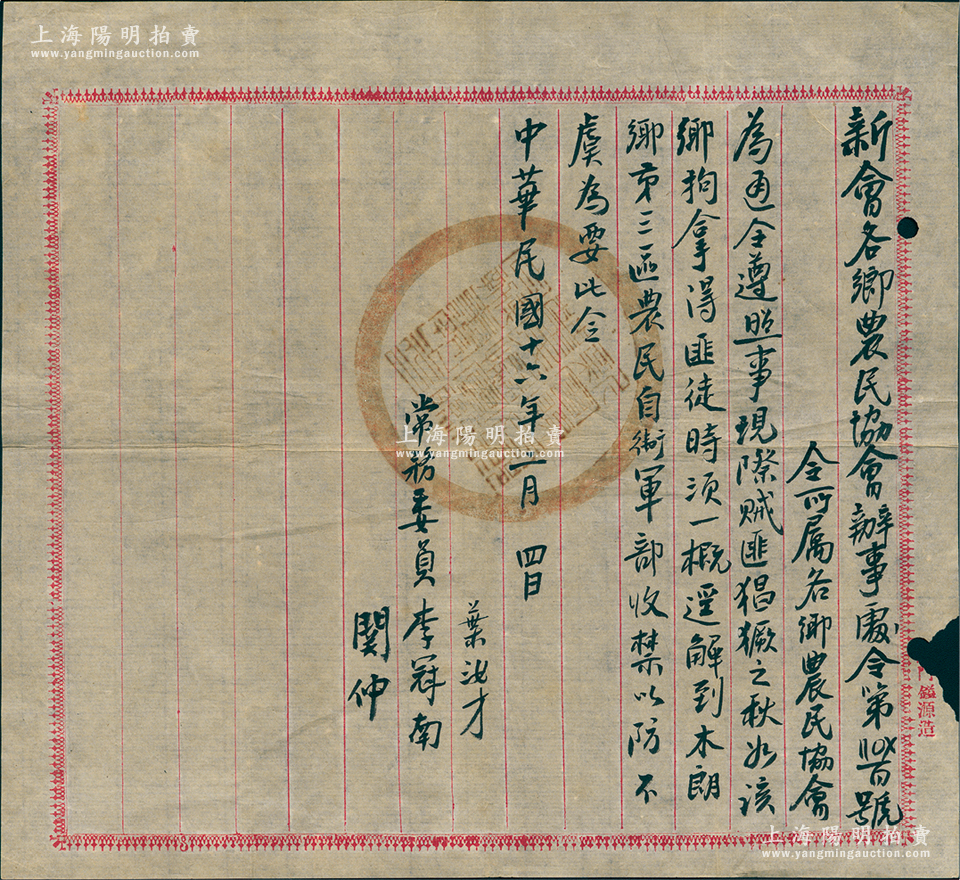 上海陽明拍賣
www.yangmingauction.com
新會各鄉農民協會辦事處令第號
令所屬各鄉農民協會
為通令遵照事現際賊匪猖獗之秋如該
鄉拘拿得匪徒時須一概逕解到木朗
鄉第三區農民自衛軍部收禁以防不
虞為要此令
中華民國十六年二月四日
葉汝才
常務委員李冠南
關仲
源造
上海陽明拍賣
www.yangmingauction.com
上海陽明拍賣
www.yangmingauction.com